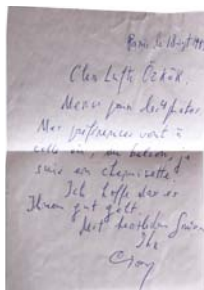 Paris, le 18
Cher Lufti Özkök,
Merci pour les photos.
Mes préférences vont à
celle où, au balcon, je
suis en chemisette.
Ich hoffe dass es
Ihnen gut geht.
Mit herzlichen Grüssen
Ihr